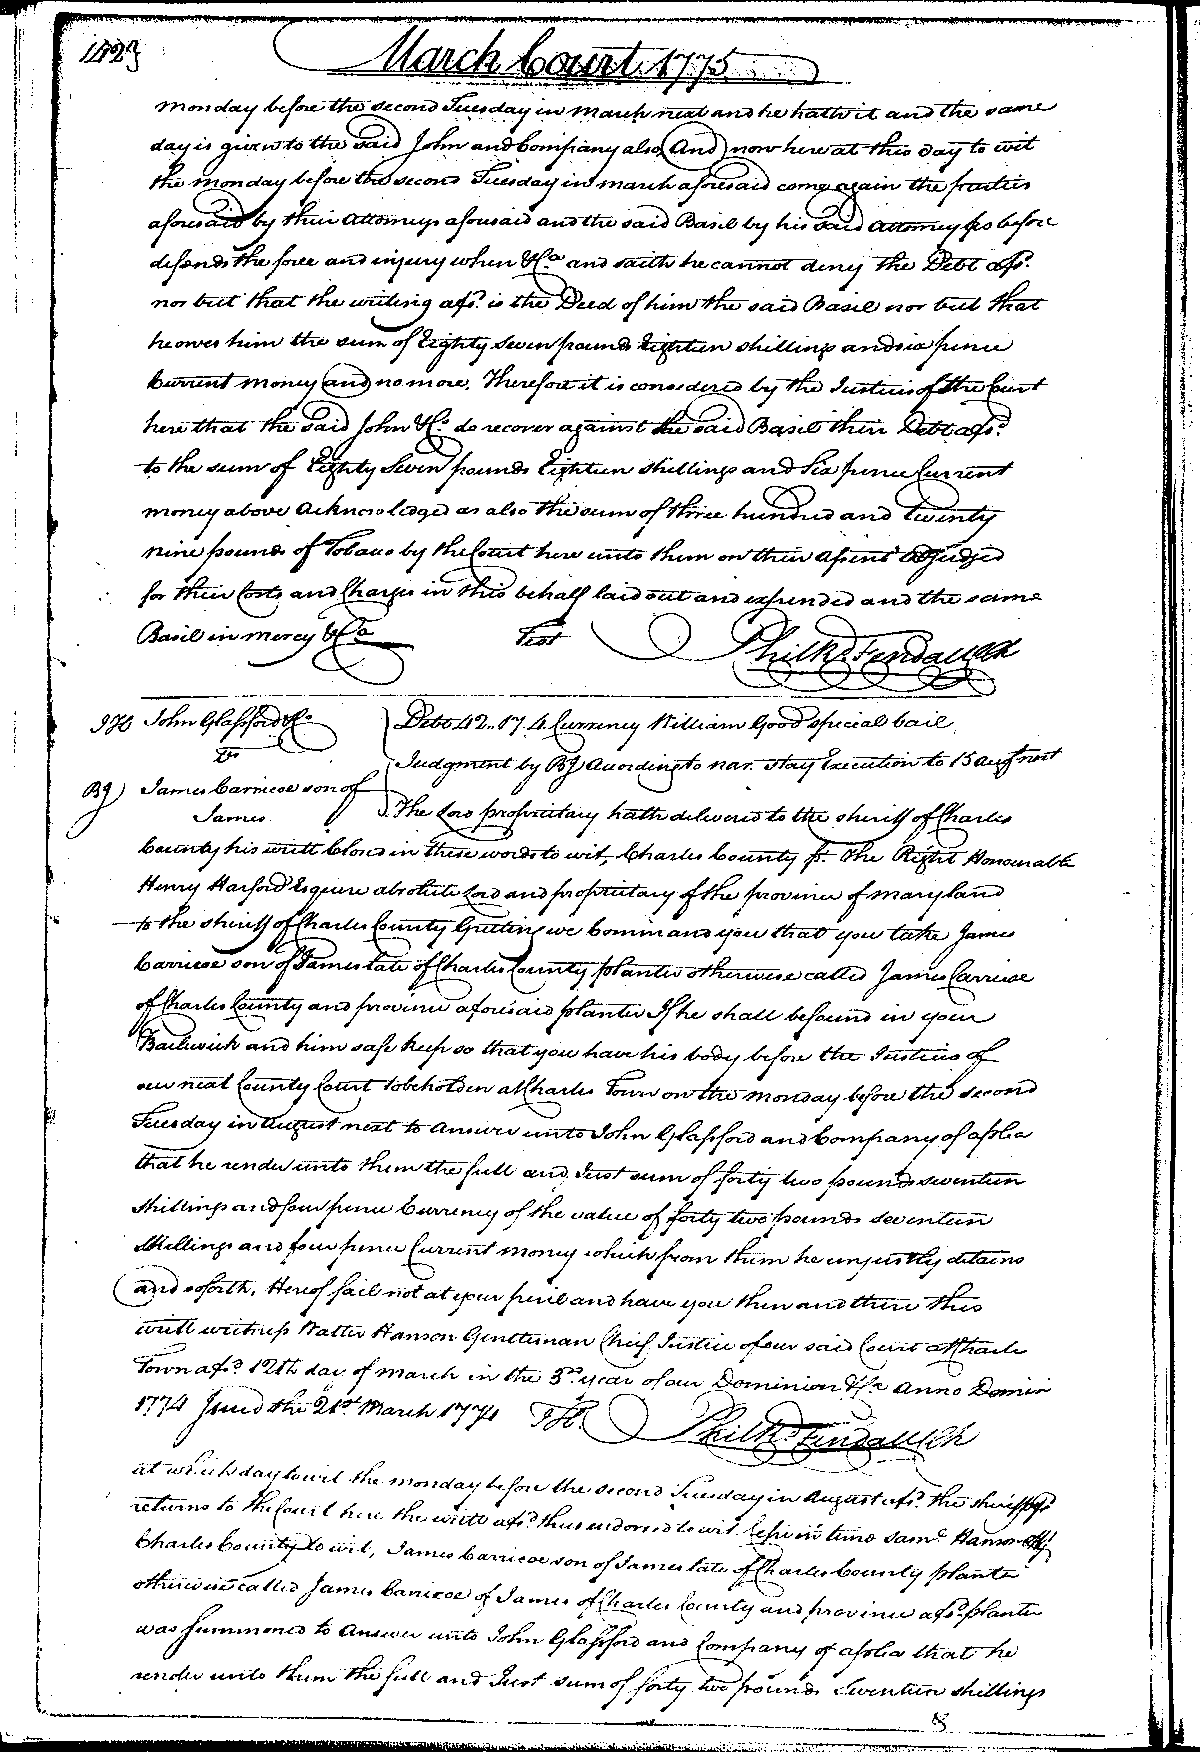 1423
March Court 1775
monday before the second Tuesday in march next and he hath it and the same
day is given to the said John and Company also And now here at this day to wit
the monday before the second Tuesday in march aforesaid come again the parties
aforesaid by their Attorneys aforesaid and the said Basil by his said Attorney as before
defends the force and injury when &Ca and saith he cannot deny the Debt afs.
nor but that the writing afs. is the Deed of him the said Basil nor but that
he owes him the sum of Eighty seven pounds Eighteen shillings and six pence
Current money and no more. Therefore it is considered by the Justices of the Court
here that the said John &C. do recover against the said Basil their Debt afs.
to the sum of Eighty Seven pounds Eighteen shillings and Six pence Current
money above Acknowledged as also the sum of three hundred and twenty
nine pounds of Tobacco by the Court here unto them on their assent adjudged
for their Costs and Charges in this behalf laid out and expended and the same
Basil in mercy &Ca Test Philkd. Fendall Clk
J H John Glassford &Co Debt 42..17.4 Currency William Good special bail
vs Judgment by BJ According to nar. stay Execution to 15 augt next
BJ James Carricoe son of
James The Lord proprietary hath delivered to the sheriff of Charles
County his writt Closed in these words to wit, Charles County ss. The Right Honourable
Henry Harford Esquire absolute Lord and proprietary of the province of maryland
to the sheriff of Charles County Greeting we Command you that you take James
Carricoe son of James late of Charles County planter otherwise called James Carricoe
of Charles County and province aforesaid planter If he shall be found in your
Bailiwick and him safe keep so that you have his body before the Justices of
our next County Court to be holden at Charles Town on the monday before the second
Tuesday in August next to Answer unto John Glassford and Company of a plea
that he render unto them the full and Just sum of forty two pounds seventeen
shillings and four pence Currency of the value of forty two pounds seventeen
Shillings and four pence Current money which from them he unjustly detains
and soforth. Hereof fail not at your peril and have you then and there this
writt witness Walter Hanson Gentleman Chief Justice of our said Court at Charles
Town afsd. 12th day of march in the 3d. year of our Dominion &Ca Anno Domini
1774 Issued the 21st March 1774 Philkd. Fendall Clk
at which day to wit the monday before the second Tuesday in August afs. the sheriff afs.
returns to the Court here the writt afsd. thus endorsed to wit Cepi in time Saml. Hanson
Charles County to wit, James Carricoe son of James late of Charles County planter
otherwise called James Carricoe of James of Charles County and province afsd. planter
was summoned to Answer unto John Glassford and Company of a plea that he
render unto them the full and Just sum of forty two pounds Seventeen shillings